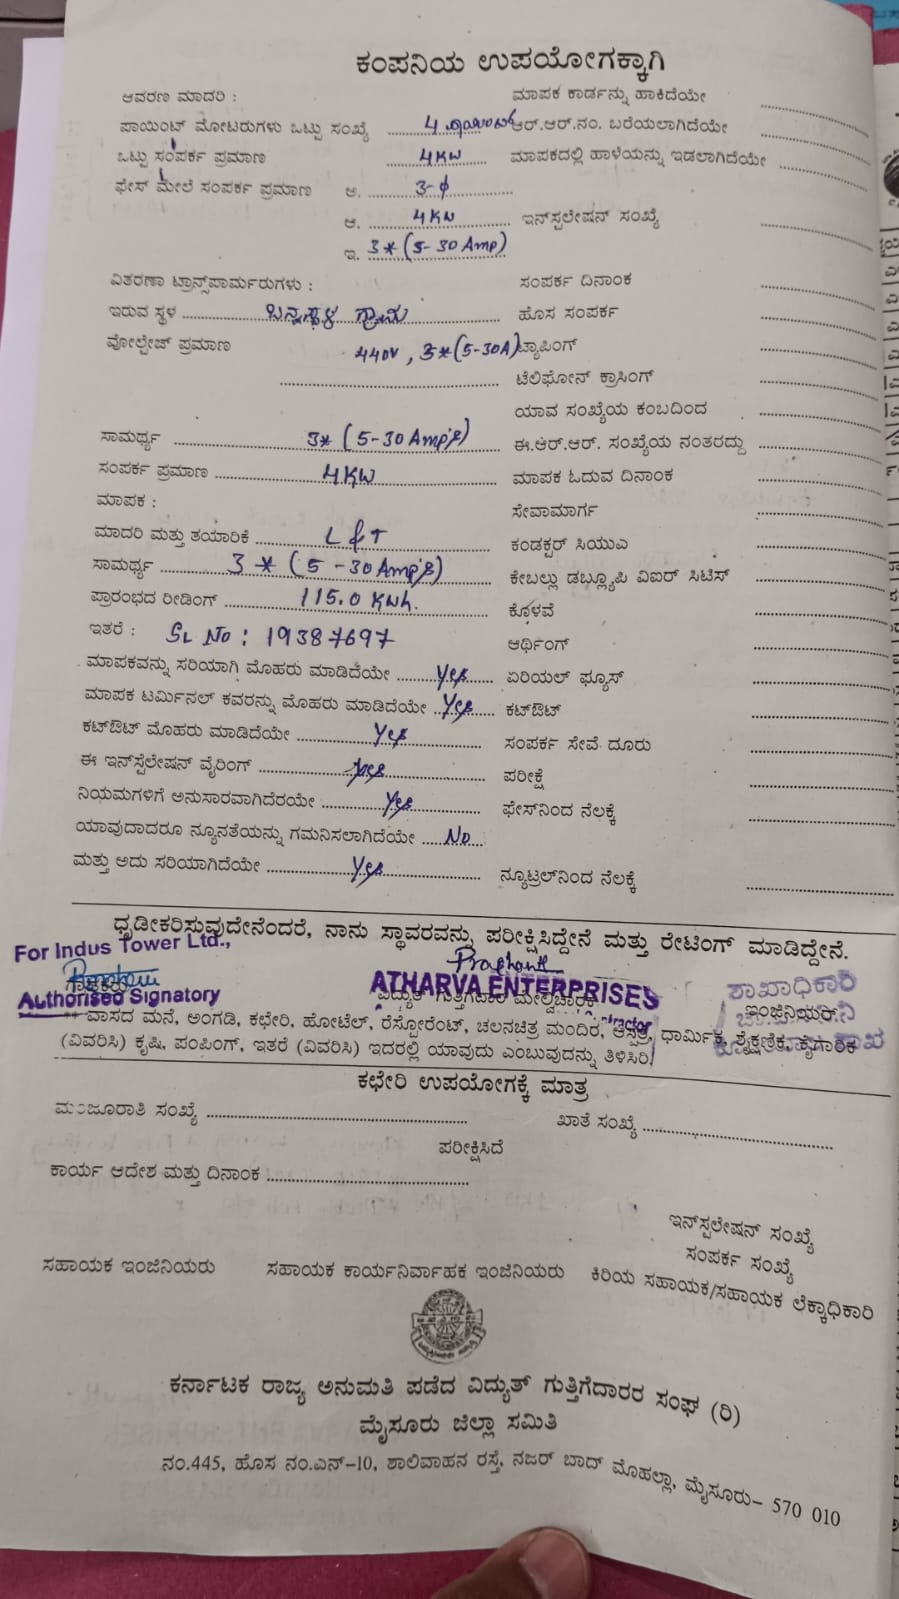 ಕಂಪನಿಯ ಉಪಯೋಗಕ್ಕಾಗಿ
ಆವರಣ ಮಾದರಿ : ಮಾಪಕ ಕಾರ್ಡನ್ನು ಹಾಕಿದೆಯೇ
ಪಾಯಿಂಟ್ ಮೋಟರುಗಳು ಒಟ್ಟು ಸಂಖ್ಯೆ 4 ಪಾಯಿಂಟ್ ಆರ್.ಆರ್.ನಂ. ಬರೆಯಲಾಗಿದೆಯೇ
ಒಟ್ಟು ಸಂಪರ್ಕ ಪ್ರಮಾಣ 4KW ಮಾಪಕದಲ್ಲಿ ಹಾಳೆಯನ್ನು ಇಡಲಾಗಿದೆಯೇ
ಫೇಸ್ ಮೇಲೆ ಸಂಪರ್ಕ ಪ್ರಮಾಣ ಅ. 3-ϕ
ಆ. 4KW ಇನ್‌ಸ್ಪಲೇಷನ್ ಸಂಖ್ಯೆ
ಇ. 3*(5-30 Amp)
ವಿತರಣಾ ಟ್ರಾನ್ಸ್‌ಪಾರ್ಮರುಗಳು : ಸಂಪರ್ಕ ದಿನಾಂಕ
ಇರುವ ಸ್ಥಳ ಗ್ರಾಮ ಹೊಸ ಸಂಪರ್ಕ
ವೋಲ್ಟೇಜ್ ಪ್ರಮಾಣ 440V, 3*(5-30A) ಟ್ಯಾಪಿಂಗ್
ಟೆಲಿಫೋನ್ ಕ್ರಾಸಿಂಗ್
ಯಾವ ಸಂಖ್ಯೆಯ ಕಂಬದಿಂದ
ಸಾಮರ್ಥ್ಯ 3*(5-30Amp's) ಈ.ಆರ್.ಆರ್. ಸಂಖ್ಯೆಯ ನಂತರದ್ದು
ಸಂಪರ್ಕ ಪ್ರಮಾಣ 4KW ಮಾಪಕ ಓದುವ ದಿನಾಂಕ
ಮಾಪಕ : ಸೇವಾಮಾರ್ಗ
ಮಾದರಿ ಮತ್ತು ತಯಾರಿಕೆ L & T ಕಂಡಕ್ಟರ್ ಸಿಯುಎ
ಸಾಮರ್ಥ್ಯ 3*(5-30Amp's) ಕೇಬಲ್ಲು ಡಬ್ಲ್ಯೂಪಿ ವಿಐರ್ ಸಿಟಿಸ್
ಪ್ರಾರಂಭದ ರೀಡಿಂಗ್ 115.0 KWh. ಕೊಳವೆ
ಇತರೆ : SL No: 19387697 ಆರ್ಥಿಂಗ್
ಮಾಪಕವನ್ನು ಸರಿಯಾಗಿ ಮೊಹರು ಮಾಡಿದೆಯೇ Yes ಏರಿಯಲ್ ಫ್ಯೂಸ್
ಮಾಪಕ ಟರ್ಮಿನಲ್ ಕವರನ್ನು ಮೊಹರು ಮಾಡಿದೆಯೇ Yes ಕಟ್‌ಔಟ್
ಕಟ್‌ಔಟ್ ಮೊಹರು ಮಾಡಿದೆಯೇ Yes ಸಂಪರ್ಕ ಸೇವೆ ದೂರು
ಈ ಇನ್‌ಸ್ಪಲೇಷನ್ ವೈರಿಂಗ್ Yes ಪರೀಕ್ಷೆ
ನಿಯಮಗಳಿಗೆ ಅನುಸಾರವಾಗಿದೆರಯೇ Yes ಫೇಸ್‌ನಿಂದ ನೆಲಕ್ಕೆ
ಯಾವುದಾದರೂ ನ್ಯೂನತೆಯನ್ನು ಗಮನಿಸಲಾಗಿದೆಯೇ No
ಮತ್ತು ಅದು ಸರಿಯಾಗಿದೆಯೇ Yes ನ್ಯೂಟ್ರಲ್‌ನಿಂದ ನೆಲಕ್ಕೆ
ಧೃಡೀಕರಿಸುವುದೇನೆಂದರೆ, ನಾನು ಸ್ಥಾವರವನ್ನು ಪರೀಕ್ಷಿಸಿದ್ದೇನೆ ಮತ್ತು ರೇಟಿಂಗ್ ಮಾಡಿದ್ದೇನೆ.
For Indus Tower Ltd.,
Prashant
ATHARVA ENTERPRISES
ಶಾಖಾಧಿಕಾರಿ
ಗ್ರಾಹಕರು ವಿದ್ಯುತ್ ಗುತ್ತಿಗೆದಾರರ ಮೇಲ್ವಿಚಾರಕ ಇಂಜಿನಿಯರ್
Authorised Signatory
ವಾಸದ ಮನೆ, ಅಂಗಡಿ, ಕಛೇರಿ, ಹೋಟೆಲ್, ರೆಸ್ಟೋರೆಂಟ್, ಚಲನಚಿತ್ರ ಮಂದಿರ, ಆಸ್ಪತ್ರೆ, ಧಾರ್ಮಿಕ, ಶೈಕ್ಷಣಿಕ, ಕೈಗಾರಿಕ
(ವಿವರಿಸಿ) ಕೃಷಿ, ಪಂಪಿಂಗ್, ಇತರೆ (ವಿವರಿಸಿ) ಇದರಲ್ಲಿ ಯಾವುದು ಎಂಬುವುದನ್ನು ತಿಳಿಸಿರಿ.
ಕಛೇರಿ ಉಪಯೋಗಕ್ಕೆ ಮಾತ್ರ
ಮಂಜೂರಾತಿ ಸಂಖ್ಯೆ ಖಾತೆ ಸಂಖ್ಯೆ
ಪರೀಕ್ಷಿಸಿದೆ
ಕಾರ್ಯ ಆದೇಶ ಮತ್ತು ದಿನಾಂಕ
ಇನ್‌ಸ್ಪಲೇಷನ್ ಸಂಖ್ಯೆ
ಸಂಪರ್ಕ ಸಂಖ್ಯೆ
ಸಹಾಯಕ ಇಂಜಿನಿಯರು ಸಹಾಯಕ ಕಾರ್ಯನಿರ್ವಾಹಕ ಇಂಜಿನಿಯರು ಕಿರಿಯ ಸಹಾಯಕ/ಸಹಾಯಕ ಲೆಕ್ಕಾಧಿಕಾರಿ
ಕರ್ನಾಟಕ ರಾಜ್ಯ ಅನುಮತಿ ಪಡೆದ ವಿದ್ಯುತ್ ಗುತ್ತಿಗೆದಾರರ ಸಂಘ (ರಿ)
ಮೈಸೂರು ಜಿಲ್ಲಾ ಸಮಿತಿ
ನಂ.445, ಹೊಸ ನಂ.ಎನ್-10, ಶಾಲಿವಾಹನ ರಸ್ತೆ, ನಜರ್ ಬಾದ್ ಮೊಹಲ್ಲಾ, ಮೈಸೂರು- 570 010